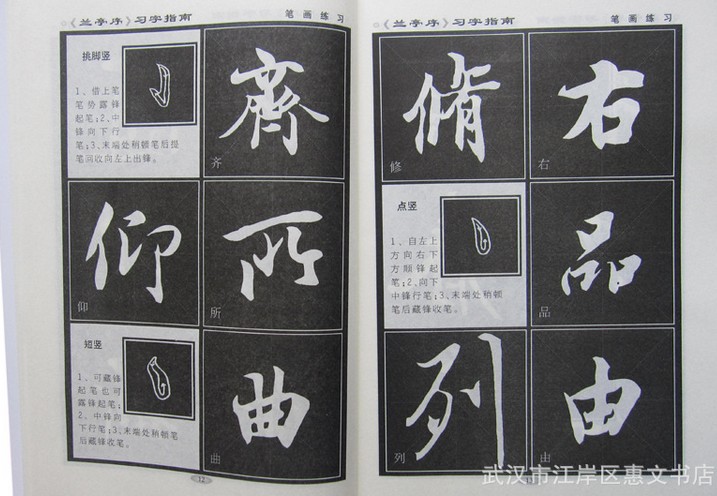 《兰亭序》习字指南
笔画练习
挑脚竖
1、借上笔
笔势露锋
起笔;2、中
锋向下行
笔;3、末端处稍顿笔后提
笔回收向左上出锋。
齐
仰
所
短竖
1、可藏锋
起笔也可
露锋起笔;
2、中锋向
下行笔;3、末端处稍顿笔
后藏锋收笔。
曲
12
《兰亭序》习字指南
笔画练习
脩
修
右
右
点竖
1、自左上
方向右下
方顺锋起
笔;2、向下
中锋行笔;3、末端处稍顿
笔后藏锋收笔。
品
品
列
列
由
由
齊
仰
所
曲
武汉市江岸区惠文书店